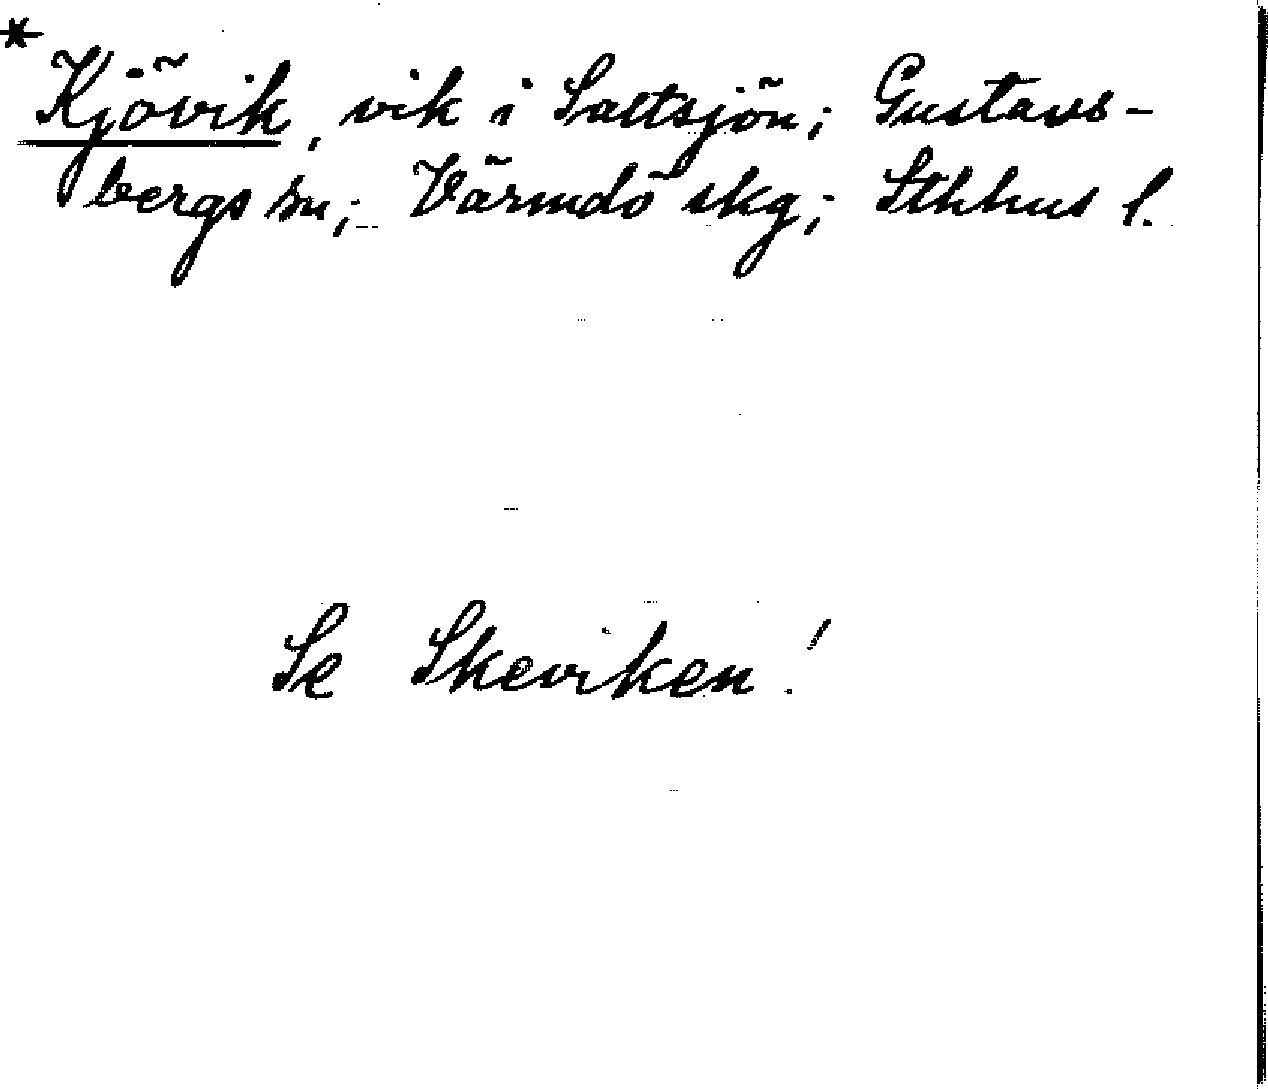 * Kjövik, vik i Saltsjön; Gustavs-
bergs sn; Värmdö skg; Sthlms l.
Se Skeviken!